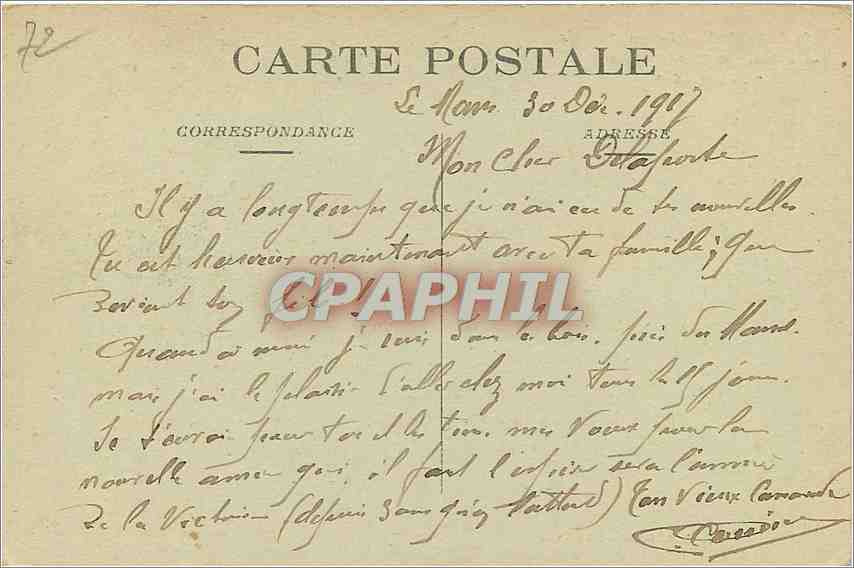 72
CARTE POSTALE
Le Mans 30 Déc. 1917
CORRESPONDANCE
ADRESSE
Mon Cher Delaporte
Il y a longtemps que je n'ai eu de tes nouvelles.
Tu es heureux maintenant avec ta famille; que
devient ton fils!!
CPAPHIL
Quand à moi je suis dans les bois, près du Mans.
mais j'ai le plaisir d'aller chez moi tous les 15 jours.
Je t'envoie pour toi et les tiens mes Voeux pour la
nouvelle année qui, il faut l'espérer sera l'année
De la Victoire (depuis 3 ans qu'on l'attend) Ton Vieux Camarade